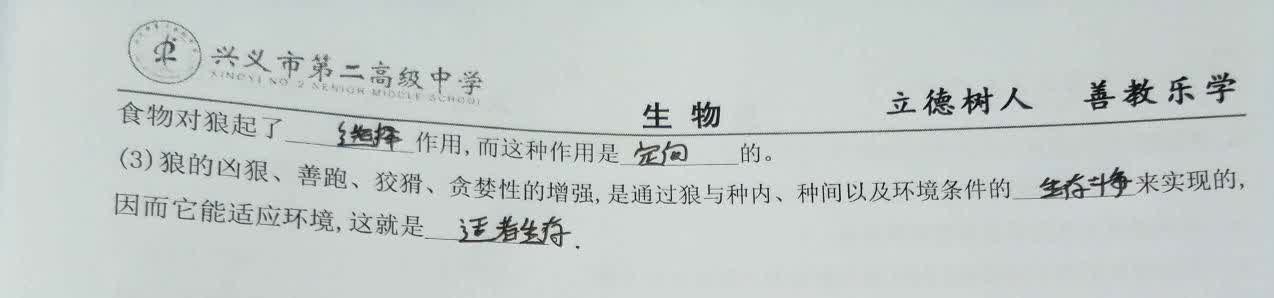 兴义市第二高级中学
XINGYI NO 2 SENIOR MIDDLE SCHOOL
生物
立德树人 善教乐学
食物对狼起了 选择 作用,而这种作用是 定向 的。
(3)狼的凶狠、善跑、狡猾、贪婪性的增强,是通过狼与种内、种间以及环境条件的 生存斗争 来实现的,
因而它能适应环境,这就是 适者生存.